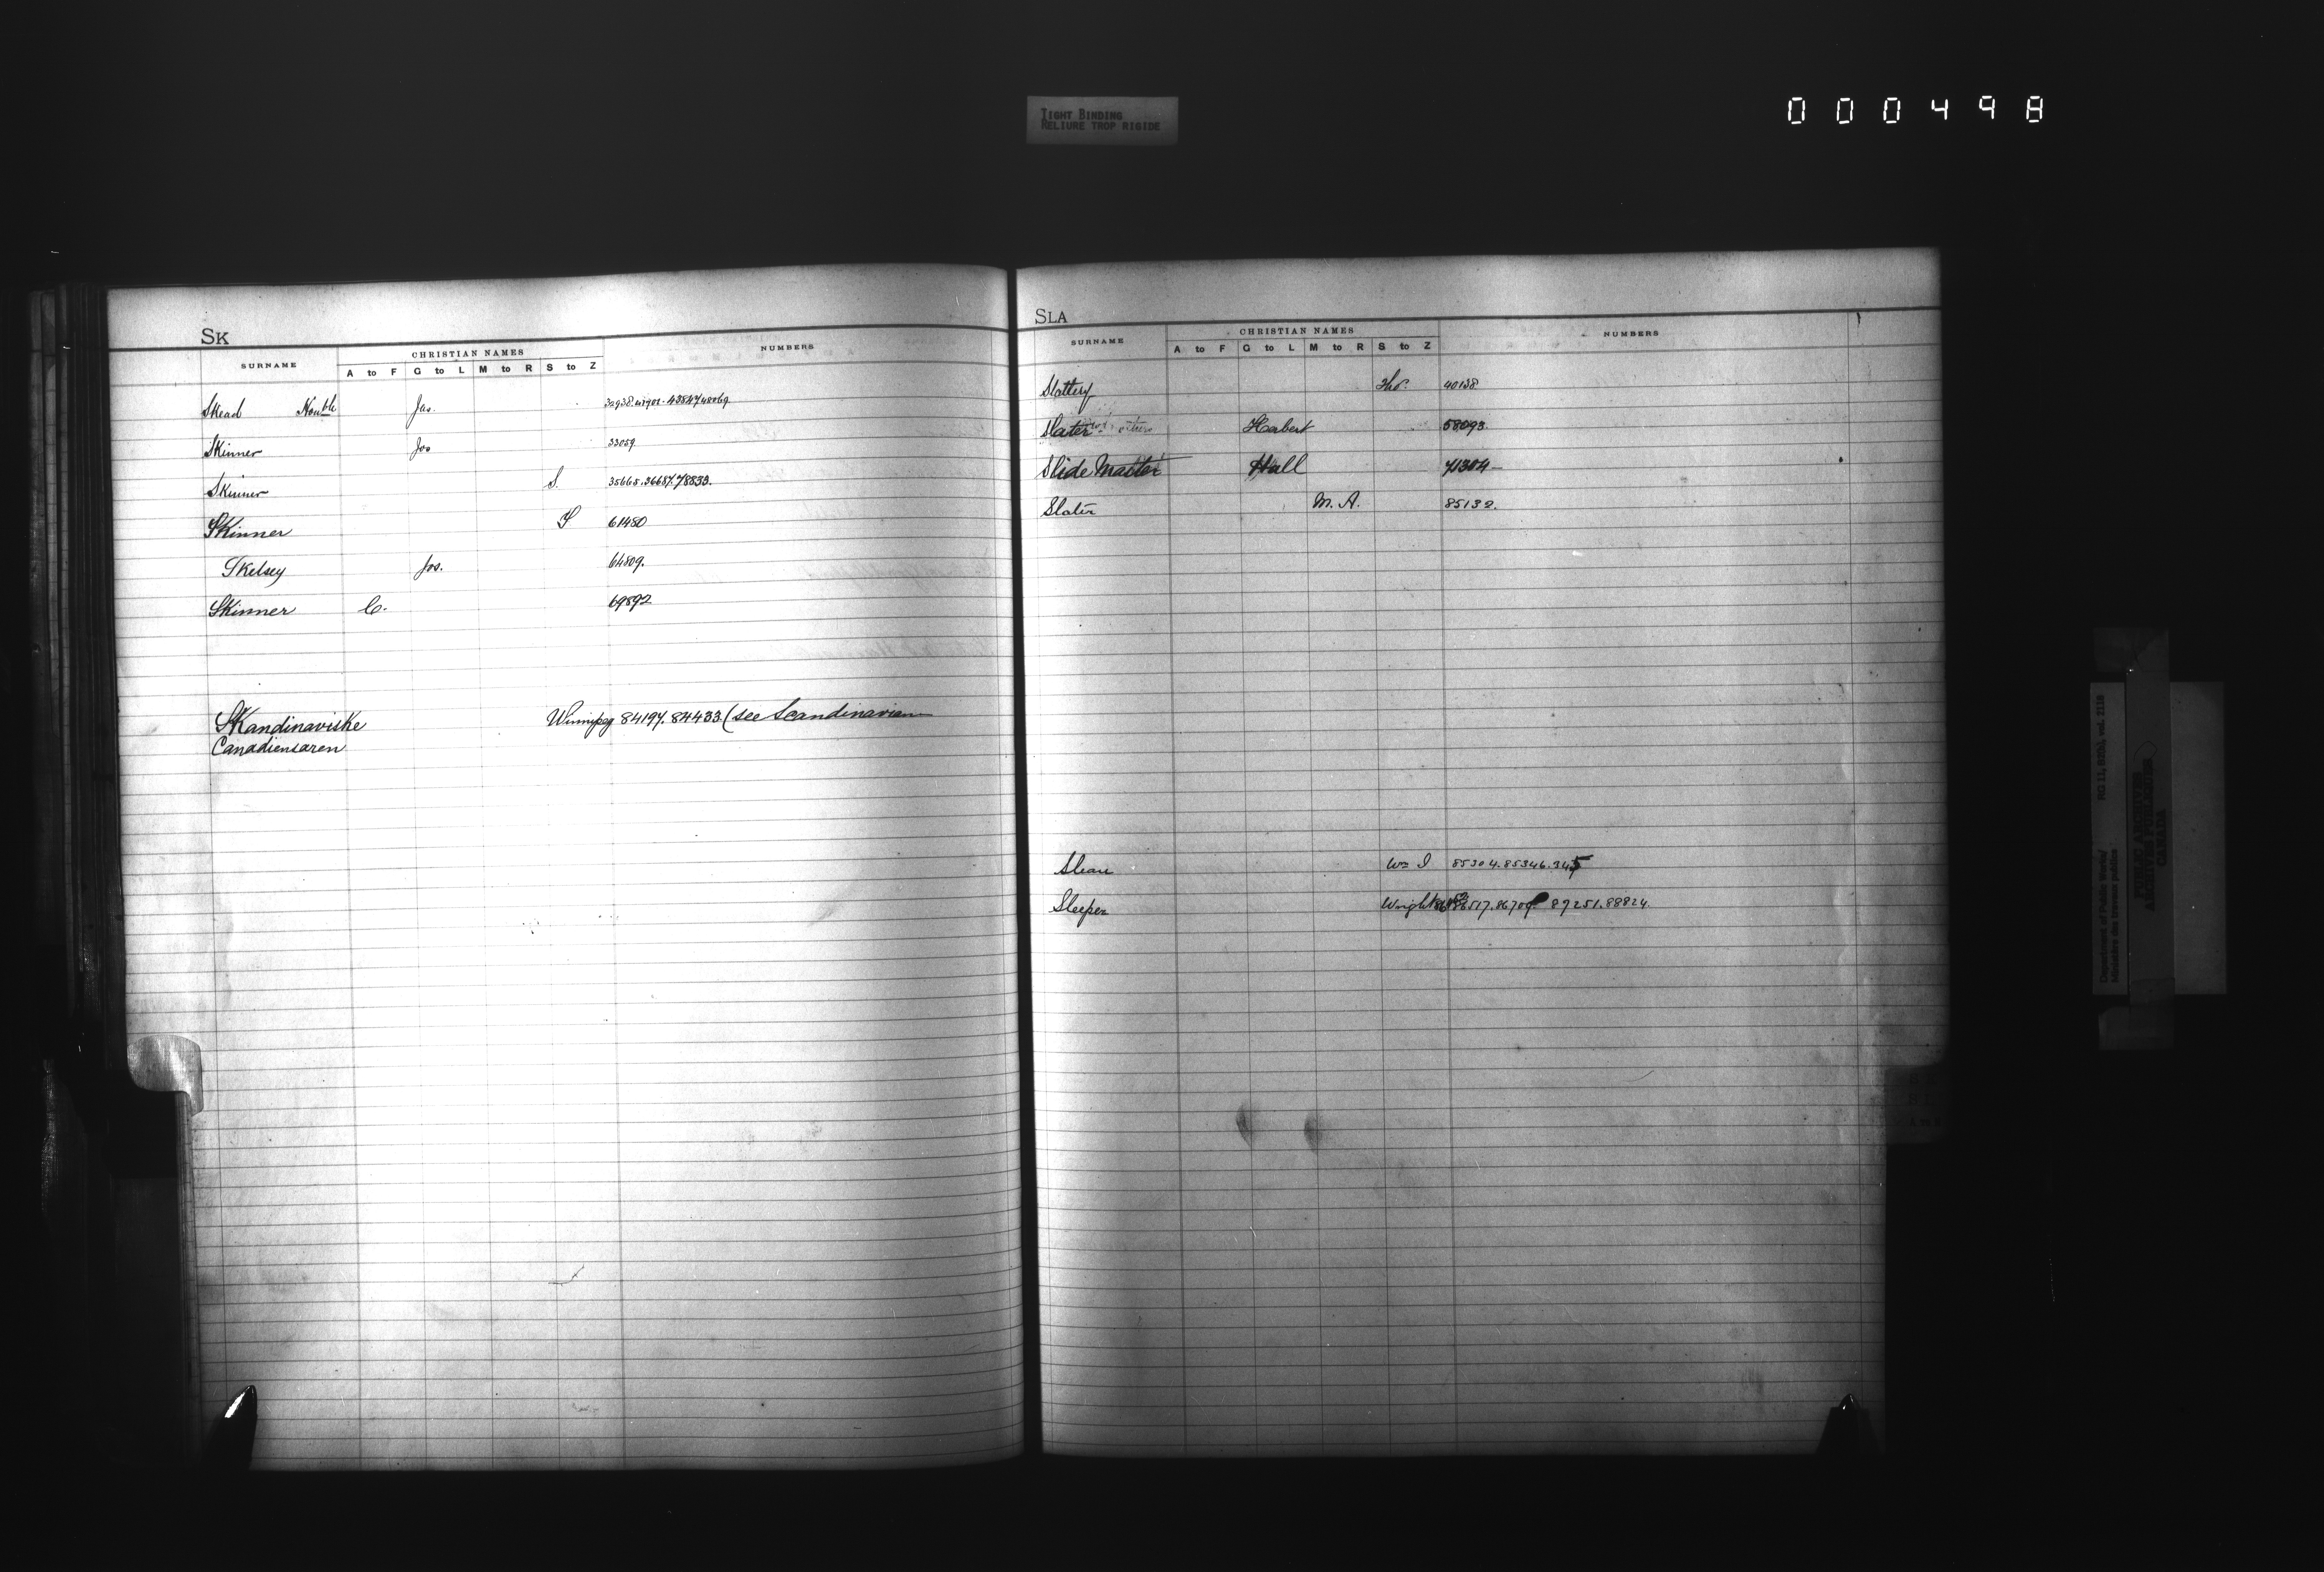 TIGHT BINDING
RELIURE TROP RIGIDE
000498
SK
SURNAME CHRISTIAN NAMES NUMBERS
A to F G to L M to R S to Z
Skead Honble Jas.
Skinner Jos 33059
Skinner S. 35665.36687.78833.
Skinner S 61480
Skelsey Jos. 64809.
Skinner C. 69892
Skandinaviske Winnipeg 84197.84433 (see Scandinavian
Canadiensaren
SLA
SURNAME CHRISTIAN NAMES NUMBERS
A to F G to L M to R S to Z
Slattery Thos. 40138
Slater others Herbert 58093.
Slide Master Hall 71304
Slater M. A. 85132.
Sloan Wm I 85304.85346.345
Sleeper Wright 86517.86709 87251.88824.
Department of Public Works/
Ministère des travaux publics
RG 11, B2(b), vol. 2118
PUBLIC ARCHIVES
ARCHIVES PUBLIQUES
CANADA